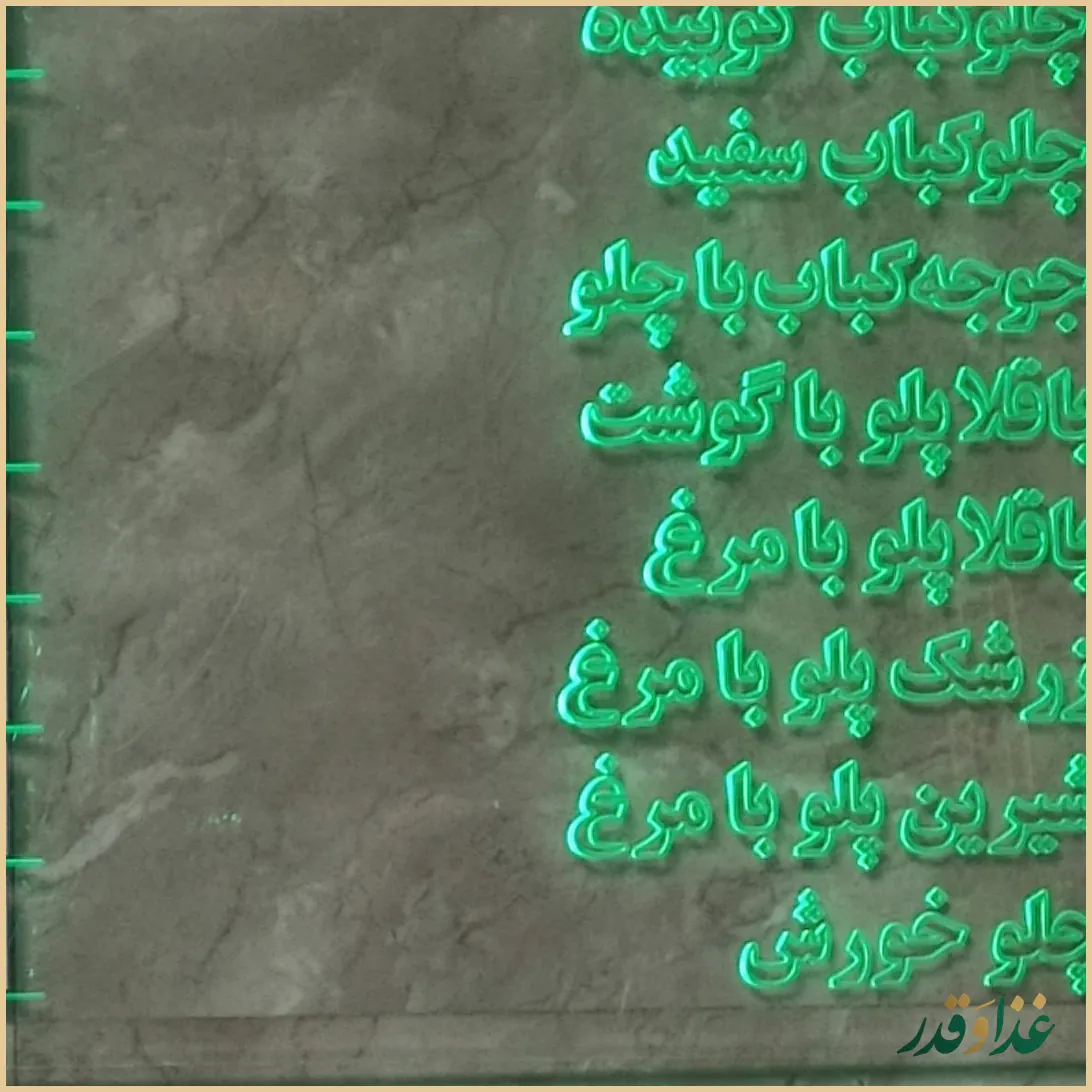 چلوکباب کوبیده
چلوکباب سفید
جوجه کباب با چلو
باقلا پلو با گوشت
باقلا پلو با مرغ
زرشک پلو با مرغ
شیرین پلو با مرغ
چلو خورش
غذا و قدر